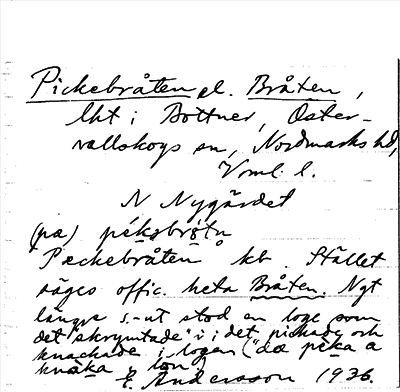 Pickebråten el. Bråten,
lht i Bottner, Öster-
vallskogs sn, Nordmarks hd,
Vrml. l.
N Nygärdet
(pa) péksbrǫ̀tn
Peckebråten kb. Stället
säges offic. heta Bråten. Ngt
längre s.-ut stod en loge som
det "skrymtade" i; det pickade och
knackade i logen ("dä peka å
knaka
E. Andersson 1936.